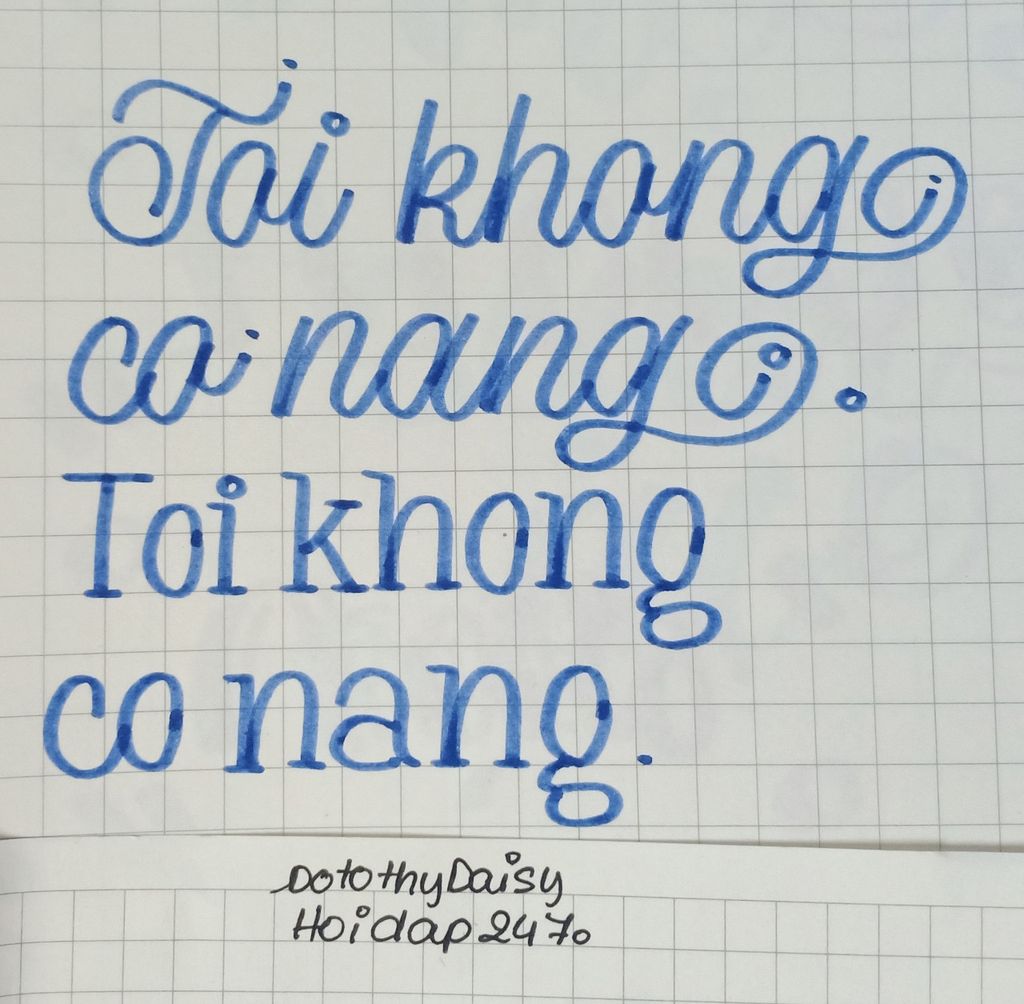 Toi khong
co nang.
Toi khong
co nang.
DotothyDaisy
Hoidap247.